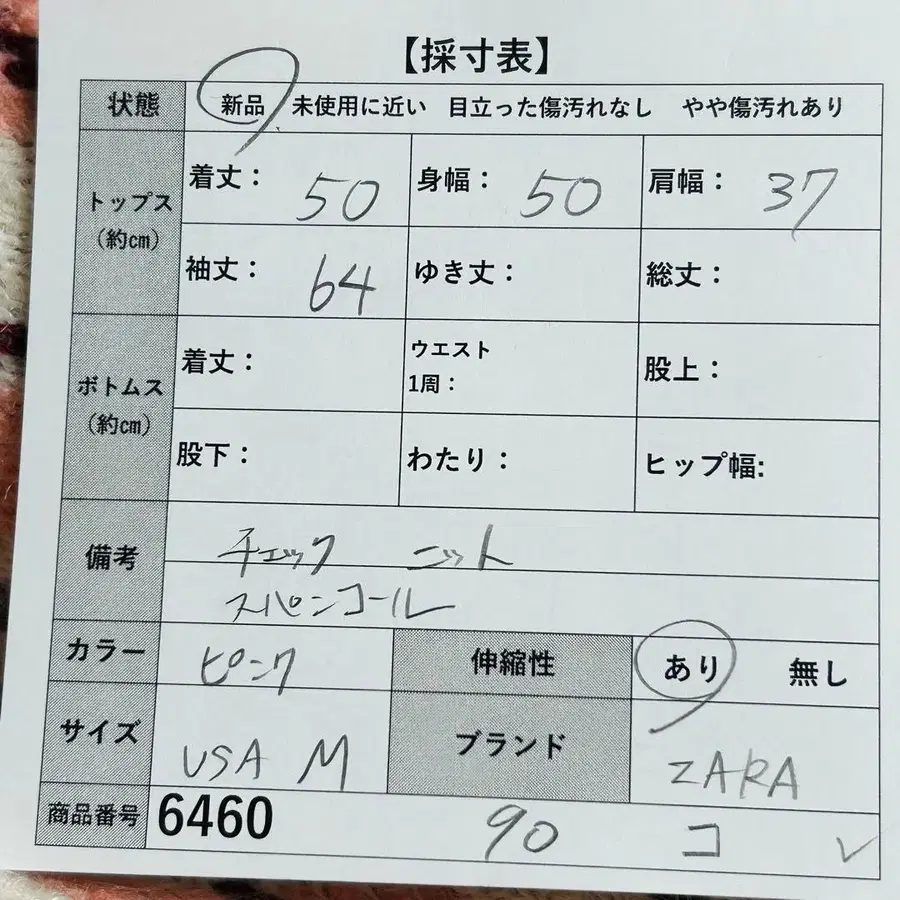 【採寸表】
状態 新品 未使用に近い 目立った傷汚れなし やや傷汚れあり
トップス（約㎝） 着丈： 50 身幅： 50 肩幅： 37
袖丈： 64 ゆき丈： 総丈：
ボトムス（約㎝） 着丈： ウエスト1周： 股上：
股下： わたり： ヒップ幅:
備考 チェック ニット
スパンコール
カラー ピンク 伸縮性 あり 無し
サイズ USA M ブランド ZARA
商品番号 6460 90 コ ✓